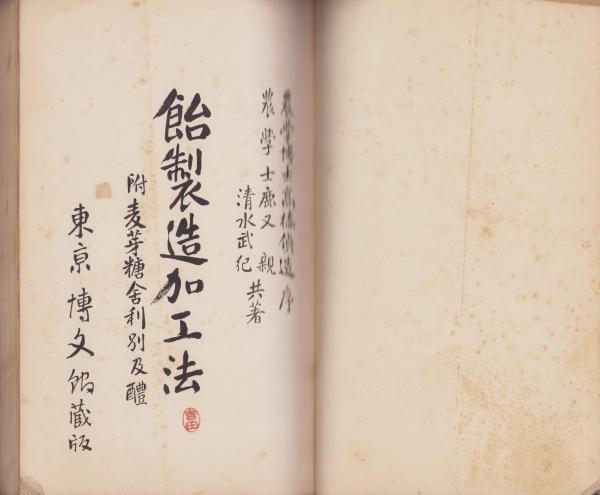 農学博士高橋偵造序
農学士鹿又親
清水武紀 共著
飴製造加工法
附麦芽糖舎利別及醴
東京博文館蔵版